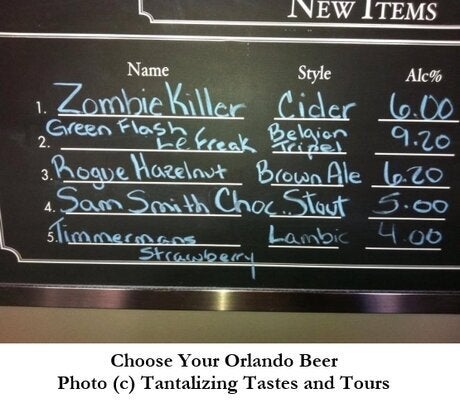 NEW ITEMS
Name Style Alc%
1. Zombie Killer Cider 6.00
2. Green Flash Le Freak Belgian Tripel 9.20
3. Rogue Hazelnut Brown Ale 6.20
4. Sam Smith Choc. Stout 5.00
5. Timmermans Lambic 4.00
Strawberry
Choose Your Orlando Beer
Photo (c) Tantalizing Tastes and Tours